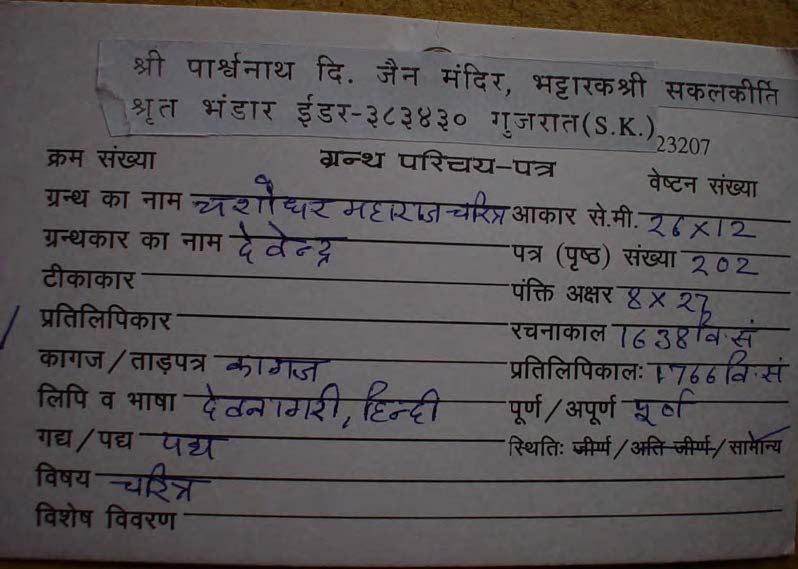 श्री पार्श्वनाथ दि. जैन मंदिर, भट्टारकश्री सकलकीर्ति
श्रृत भंडार ईडर-३८३४३० गुजरात(S.K.) 23207
क्रम संख्या ग्रन्थ परिचय-पत्र वेष्टन संख्या
ग्रन्थ का नाम यशोधर महाराज चरित्र आकार से.मी. 26×12
ग्रन्थकार का नाम देवेन्द्र पत्र (पृष्ठ) संख्या 202
टीकाकार पंक्ति अक्षर 8×27
प्रतिलिपिकार रचनाकाल 1638 वि.सं
कागज/ताड़पत्र कागज प्रतिलिपिकालः 1766 वि.सं
लिपि व भाषा देवनागरी, हिन्दी पूर्ण/अपूर्ण पूर्ण
गद्य/पद्य पद्य स्थितिः जीर्ण/अति जीर्ण/सामान्य
विषय चरित्र
विशेष विवरण